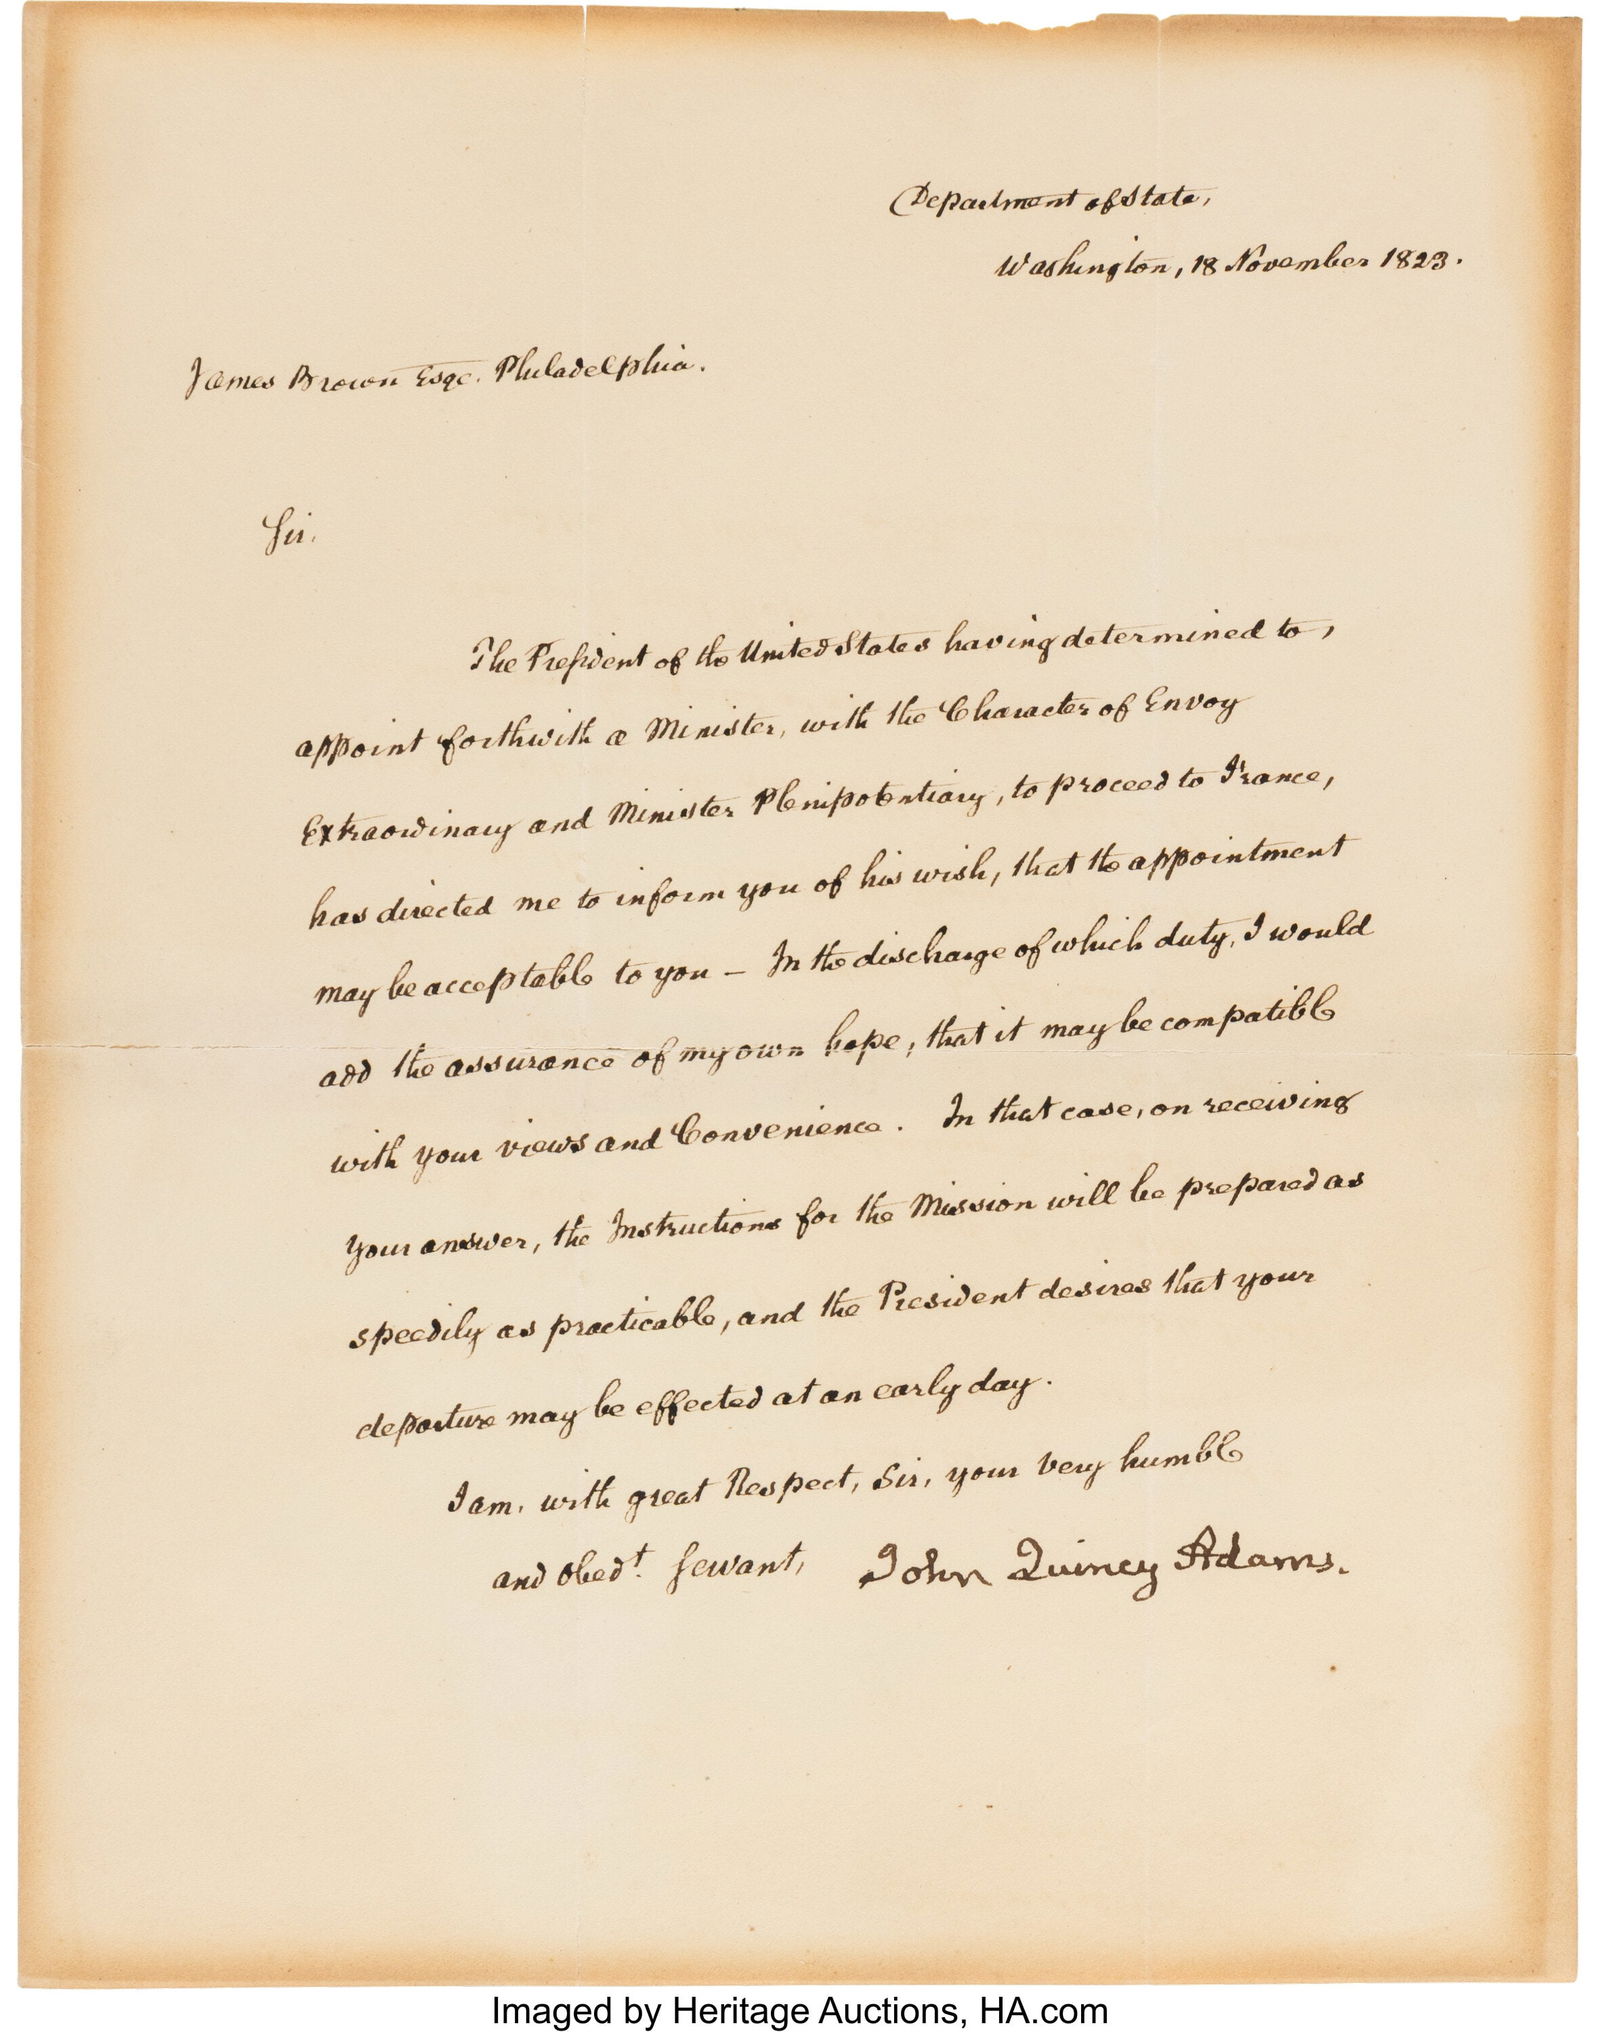 Department of State,
Washington, 18 November 1823.
James Brown Esqe. Philadelphia.
Sir.
The President of the United States having determined to,
appoint forthwith a Minister, with the Character of Envoy
Extraordinary and Minister Plenipotentiary, to proceed to France,
has directed me to inform you of his wish, that the appointment
may be acceptable to you – In the discharge of which duty, I would
add the assurance of my own hope, that it may be compatible
with your views and Convenience. In that case, on receiving
your answer, the Instructions for the Mission will be prepared as
speedily as practicable, and the President desires that your
departure may be effected at an early day.
I am, with great Respect, Sir, your very humble
and obedt. servant, John Quincy Adams.
Imaged by Heritage Auctions, HA.com